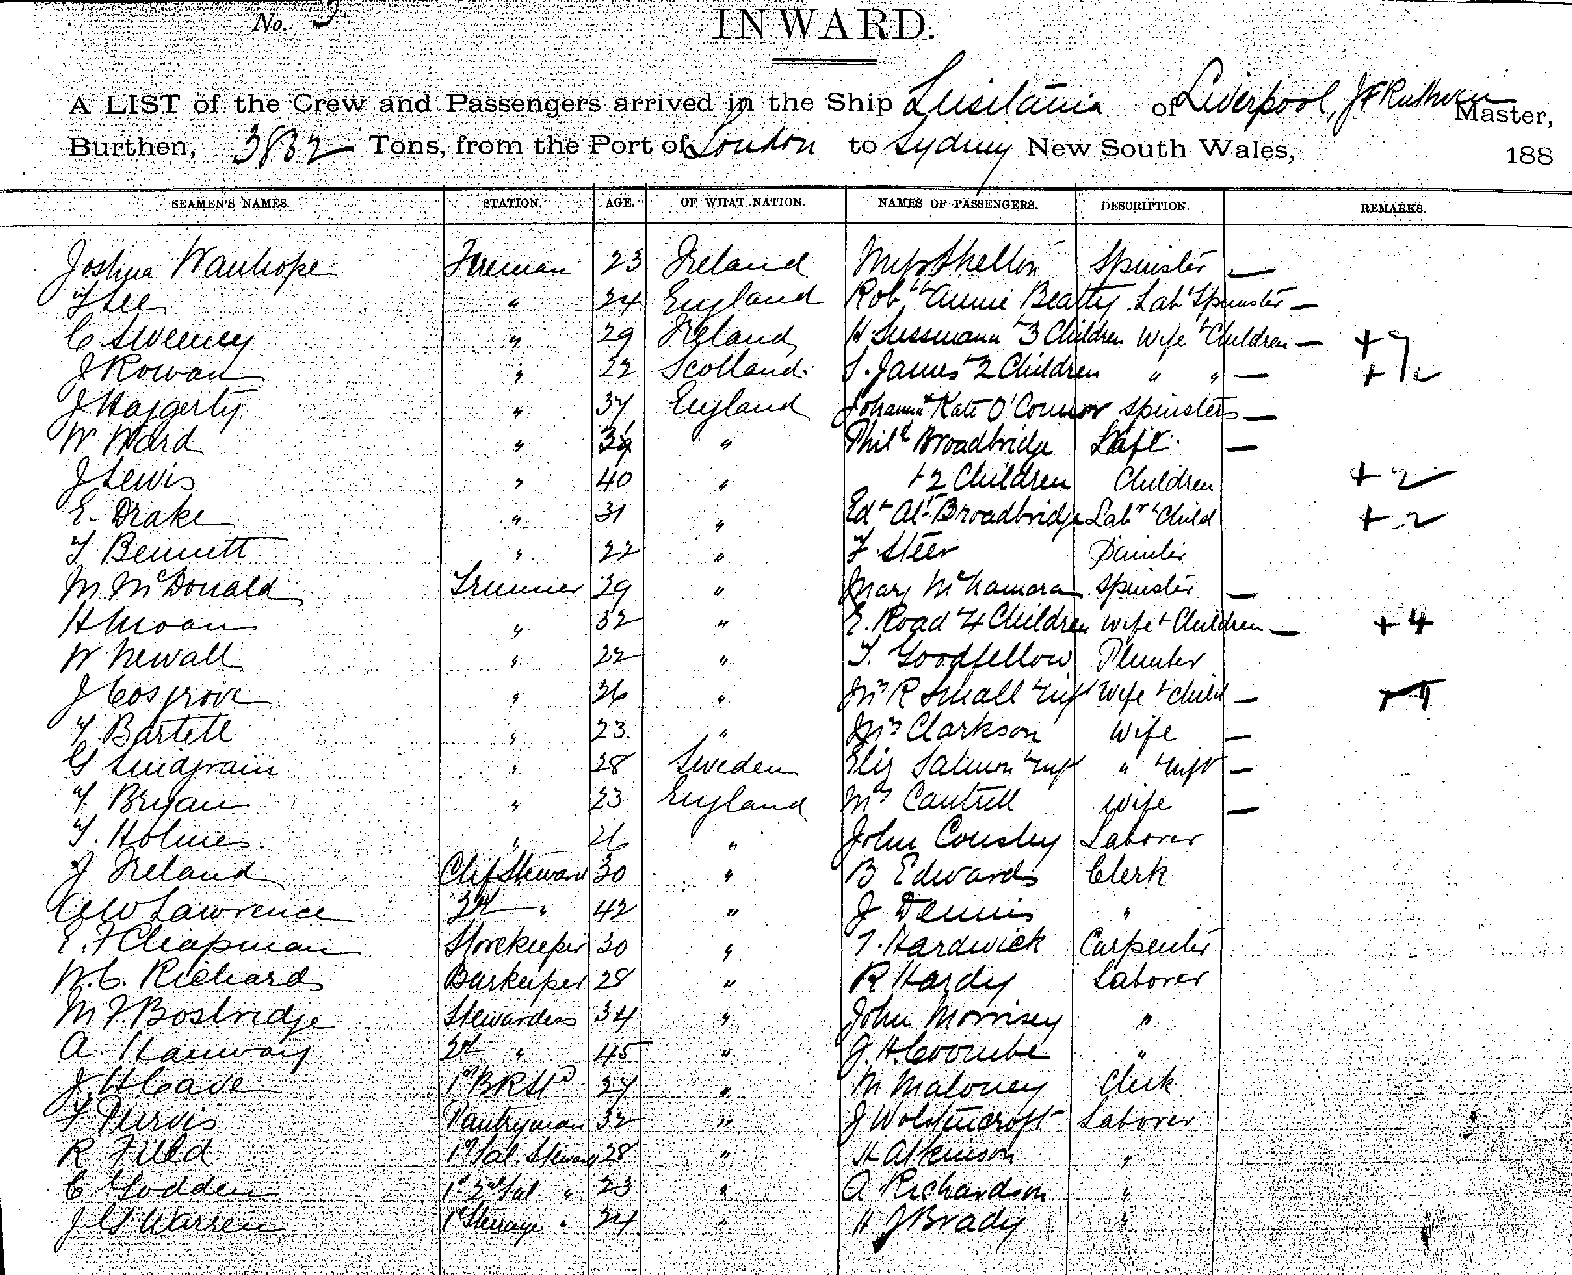 No. 3
INWARD.
A LIST of the Crew and Passengers arrived in the Ship Lusitania of Liverpool, J F Ruthven Master,
Burthen, 3832 Tons, from the Port of London to Sydney New South Wales, 188
SEAMEN'S NAMES. STATION. AGE. OF WHAT NATION. NAMES OF PASSENGERS. DESCRIPTION. REMARKS.
Joshua Wanhope Fireman 23 Ireland Miss Shelton Spinster —
T Lee " 24 England Robt & Annie Beatty Labr Spinster —
C Sweeney " 29 Ireland H Sussmann & 3 Children Wife & Children —
J Rowan " 22 Scotland. S. James & 2 Children " " — + 2
J Haggerty " 37 England Johanna & Kate O'Connor Spinsters —
W Ward " " Broadbridge —
J Lewis " 40 " + 2 Children Children + 2
E. Drake " 31 " Ed & Alf Broadbridge Labr & Child + 2
T Bennett " 22 " F Steer Painter
M McDonald Trimmer 39 " Mary McNamara Spinster —
H Moan " 32 " E. Road & 4 Children Wife & Children — + 4
W Newall " 22 " T. Goodfellow Plumber
J Cosgrove " 26 " Mrs R Small & inft Wife & Child —
T Bartett " 23 " Mrs Clarkson Wife —
G Lindgrain " 28 Sweden Eliz Salmon & inft " & inft —
T. Bryan " 23 England Mrs Cantrill Wife —
T. Holmes " 26 " John Cousley Laborer
J Ireland Chf Steward 30 " B Edwards Clerk
Lawrence 2nd " 42 " J Dennis "
E. F Chapman Storekeeper 30 " T. Hardwick Carpenter
W. C. Richards Barkeeper 28 " R Hardy Laborer
M F Bostridge Stewardess 34 " John Morrisey "
A. Hanway 2nd " 45 " J. H. Coombe "
J. H Cave 1st BR Std 27 " M Maloney Clerk
F Purvis Pantryman 32 " J Wolstencroft Laborer
R Field 1st Sal. Steward 28 " H Atkinson "
C Hodden 1st 2nd Sal " 23 " A Richardson "
J. G Warren 1st Steerage " 24 " H J Brady "